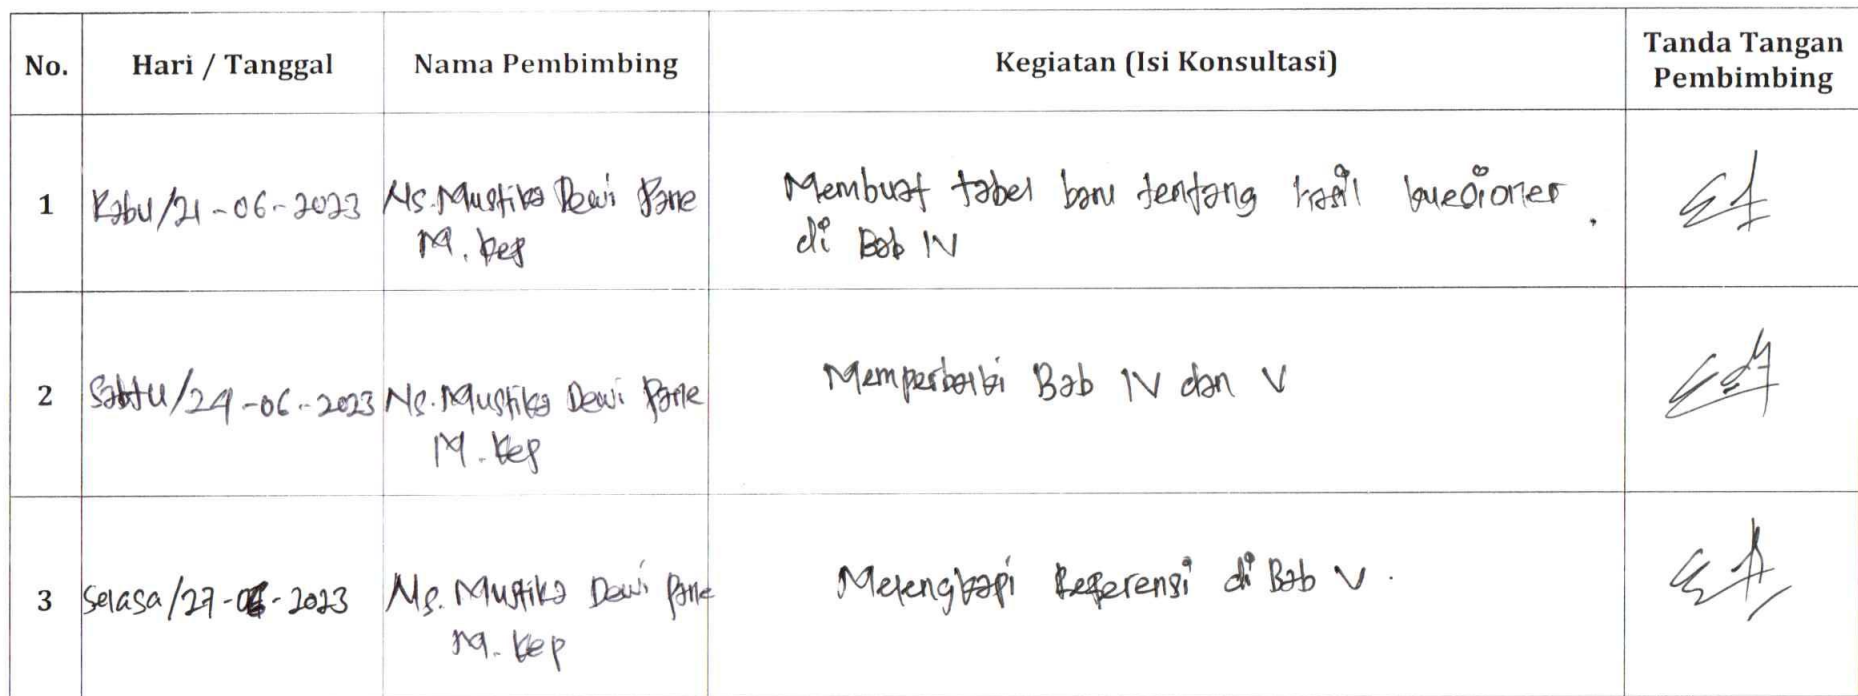 No. Hari / Tanggal Nama Pembimbing Kegiatan (Isi Konsultasi) Tanda Tangan Pembimbing
1 Rabu/21-06-2023 Ns. Mustika Dewi Pane Membuat tabel baru tentang hasil kuesioner
M. Kep di Bab IV .
2 Sabtu/24-06-2023 Ns. Mustika Dewi Pane Memperbaiki Bab IV dan V
M. Kep
3 Selasa/27-06-2023 Ns. Mustika Dewi Pane Melengkapi Referensi di Bab V.
M. Kep